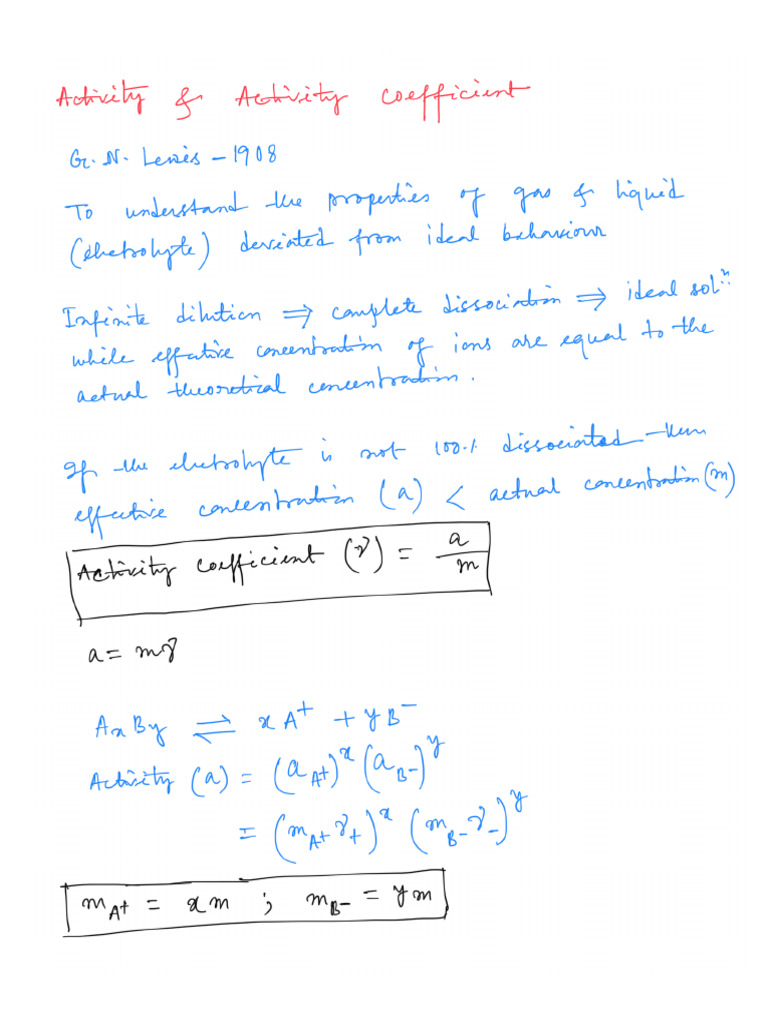 Activity & Activity coefficient
G. N. Lewis - 1908
To understand the properties of gas & liquid
(electrolyte) deviated from ideal behaviour
Infinite dilution ⇒ complete dissociation ⇒ ideal solⁿ
while effective concentration of ions are equal to the
actual theoretical concentration.
If the electrolyte is not 100% dissociated then
effective concentration (a) < actual concentration (m)
Activity coefficient (γ) = a/m
a = mγ
AxBy ⇌ xA⁺ + yB⁻
Activity (a) = (a_A⁺)^x (a_B⁻)^y
= (m_A⁺ γ₊)^x (m_B⁻ γ₋)^y
m_A⁺ = xm ; m_B⁻ = ym